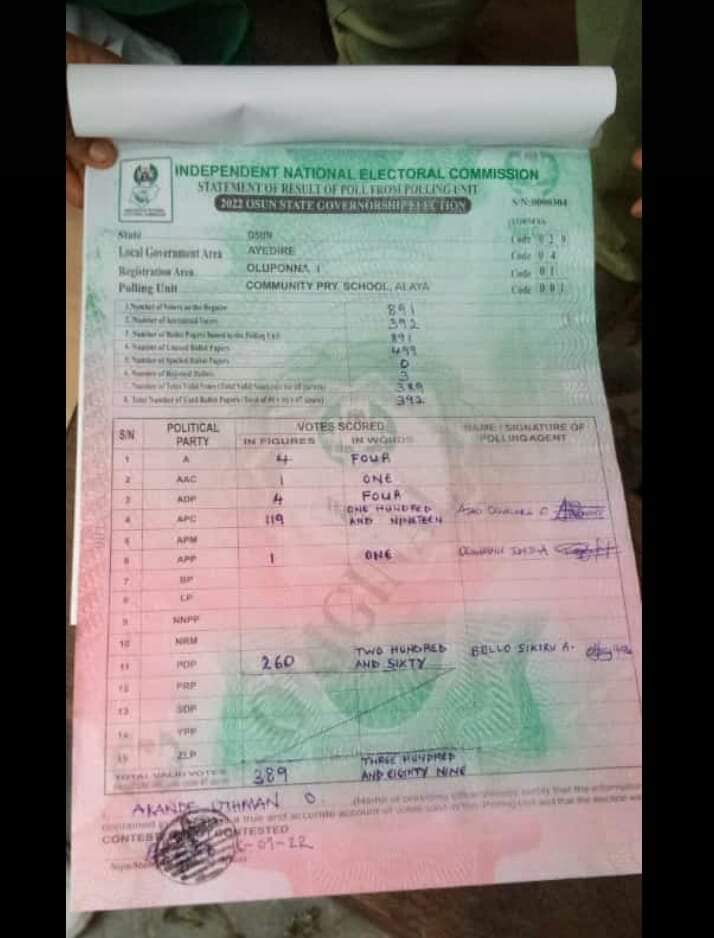 INDEPENDENT NATIONAL ELECTORAL COMMISSION
STATEMENT OF RESULT OF POLL FROM POLLING UNIT
2022 OSUN STATE GOVERNORSHIP ELECTION
S/N:0000304
State OSUN Code 029
Local Government Area AYEDIRE Code 04
Registration Area OLUPONNA 1 Code 01
Polling Unit COMMUNITY PRY SCHOOL, ALAYA Code 001
1. Number of Voters on the Register 891
2. Number of Accredited Voters 392
3. Number of Ballot Papers Issued to the Polling Unit 891
4. Number of Unused Ballot Papers 499
5. Number of Spoiled Ballot Papers 0
6. Number of Rejected Ballots 3
7. Number of Total Valid Votes (Total Valid Votes cast for all parties) 389
8. Total Number of Used Ballot Papers (Total of #5 + #6 + #7 above) 392
S/N POLITICAL PARTY VOTES SCORED NAME / SIGNATURE OF POLLING AGENT
IN FIGURES IN WORDS
1 A 4 FOUR
2 AAC 1 ONE
3 ADP 4 FOUR
4 APC 119 ONE HUNDRED AND NINETEEN
5 APM
6 APP 1 ONE
7 BP
8 LP
9 NNPP
10 NRM
11 PDP 260 TWO HUNDRED AND SIXTY BELLO SIKIRU A.
12 PRP
13 SDP
14 YPP
15 ZLP
TOTAL VALID VOTES 389 THREE HUNDRED AND EIGHTY NINE
AKANDE UTHMAN O. (Name of presiding officer) hereby certify that the information
contained in a true and accurate account of votes cast in this Polling Unit and that the election was
CONTESTED CONTESTED
-07-22